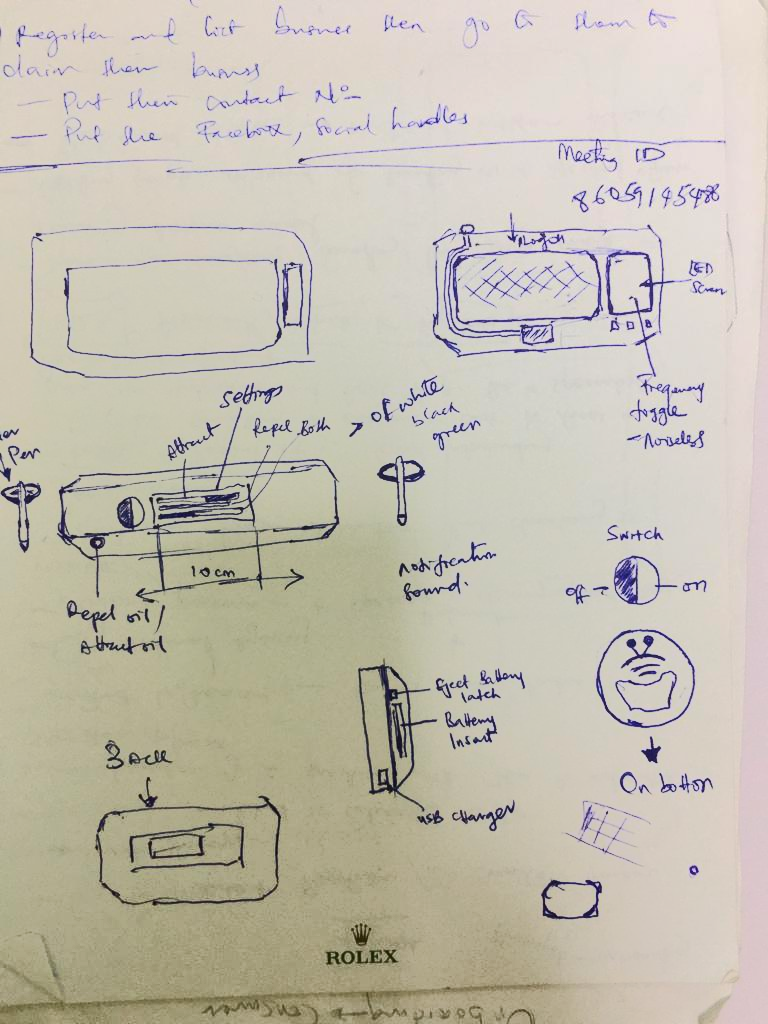 Register and list business then go to them to
claim their business
— Put their contact No-
— Put the Facebook, social handles
Meeting ID
86059145486
LED
Screen
Frequency
toggle
- Noiseless
Settings
Attract
Repel
Both
> Off white
black
green
Pen
10cm
notification
Sound.
Repel oil/
Attract oil
Switch
off
on
Eject Battery
latch
Battery
Insert
USB Charger
On botton
Back
ROLEX
Onboarding → Consumer